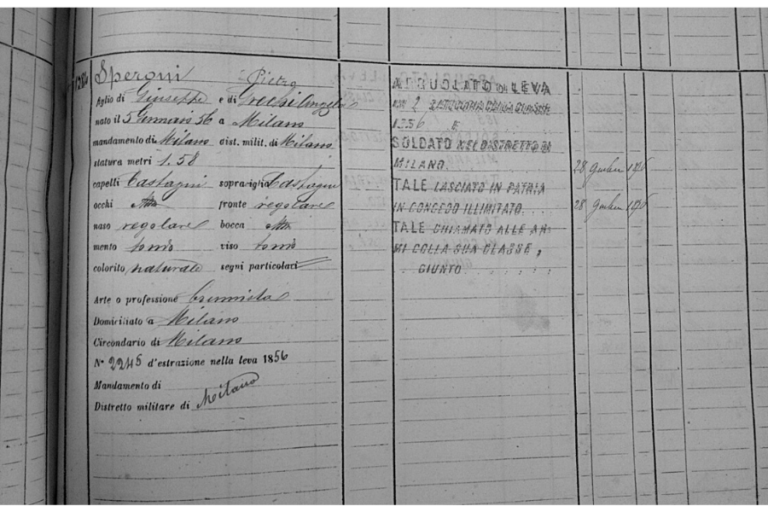 Speroni Pietro
figlio di Giuseppe e di
nato il 5 Gennaio 56 a Milano
mandamento di Milano dist. milit. di Milano
statura metri 1.58
capelli Castagni sopraciglia Castagni
occhi fronte regolare
naso regolare bocca
mento tondo viso tondo
colorito naturale segni particolari
Arte o professione
Domiciliato a Milano
Circondario di Milano
N° 2245 d'estrazione nella leva 1856
Mandamento di
Distretto militare di Milano
ARRUOLATO DI LEVA
1856 E
SOLDATO NEL DISTRETTO DI
MILANO.
TALE LASCIATO IN PATRIA
IN CONGEDO ILLIMITATO.
TALE CHIAMATO ALLE AR-
MI COLLA SUA CLASSE,
GIUNTO
28
28